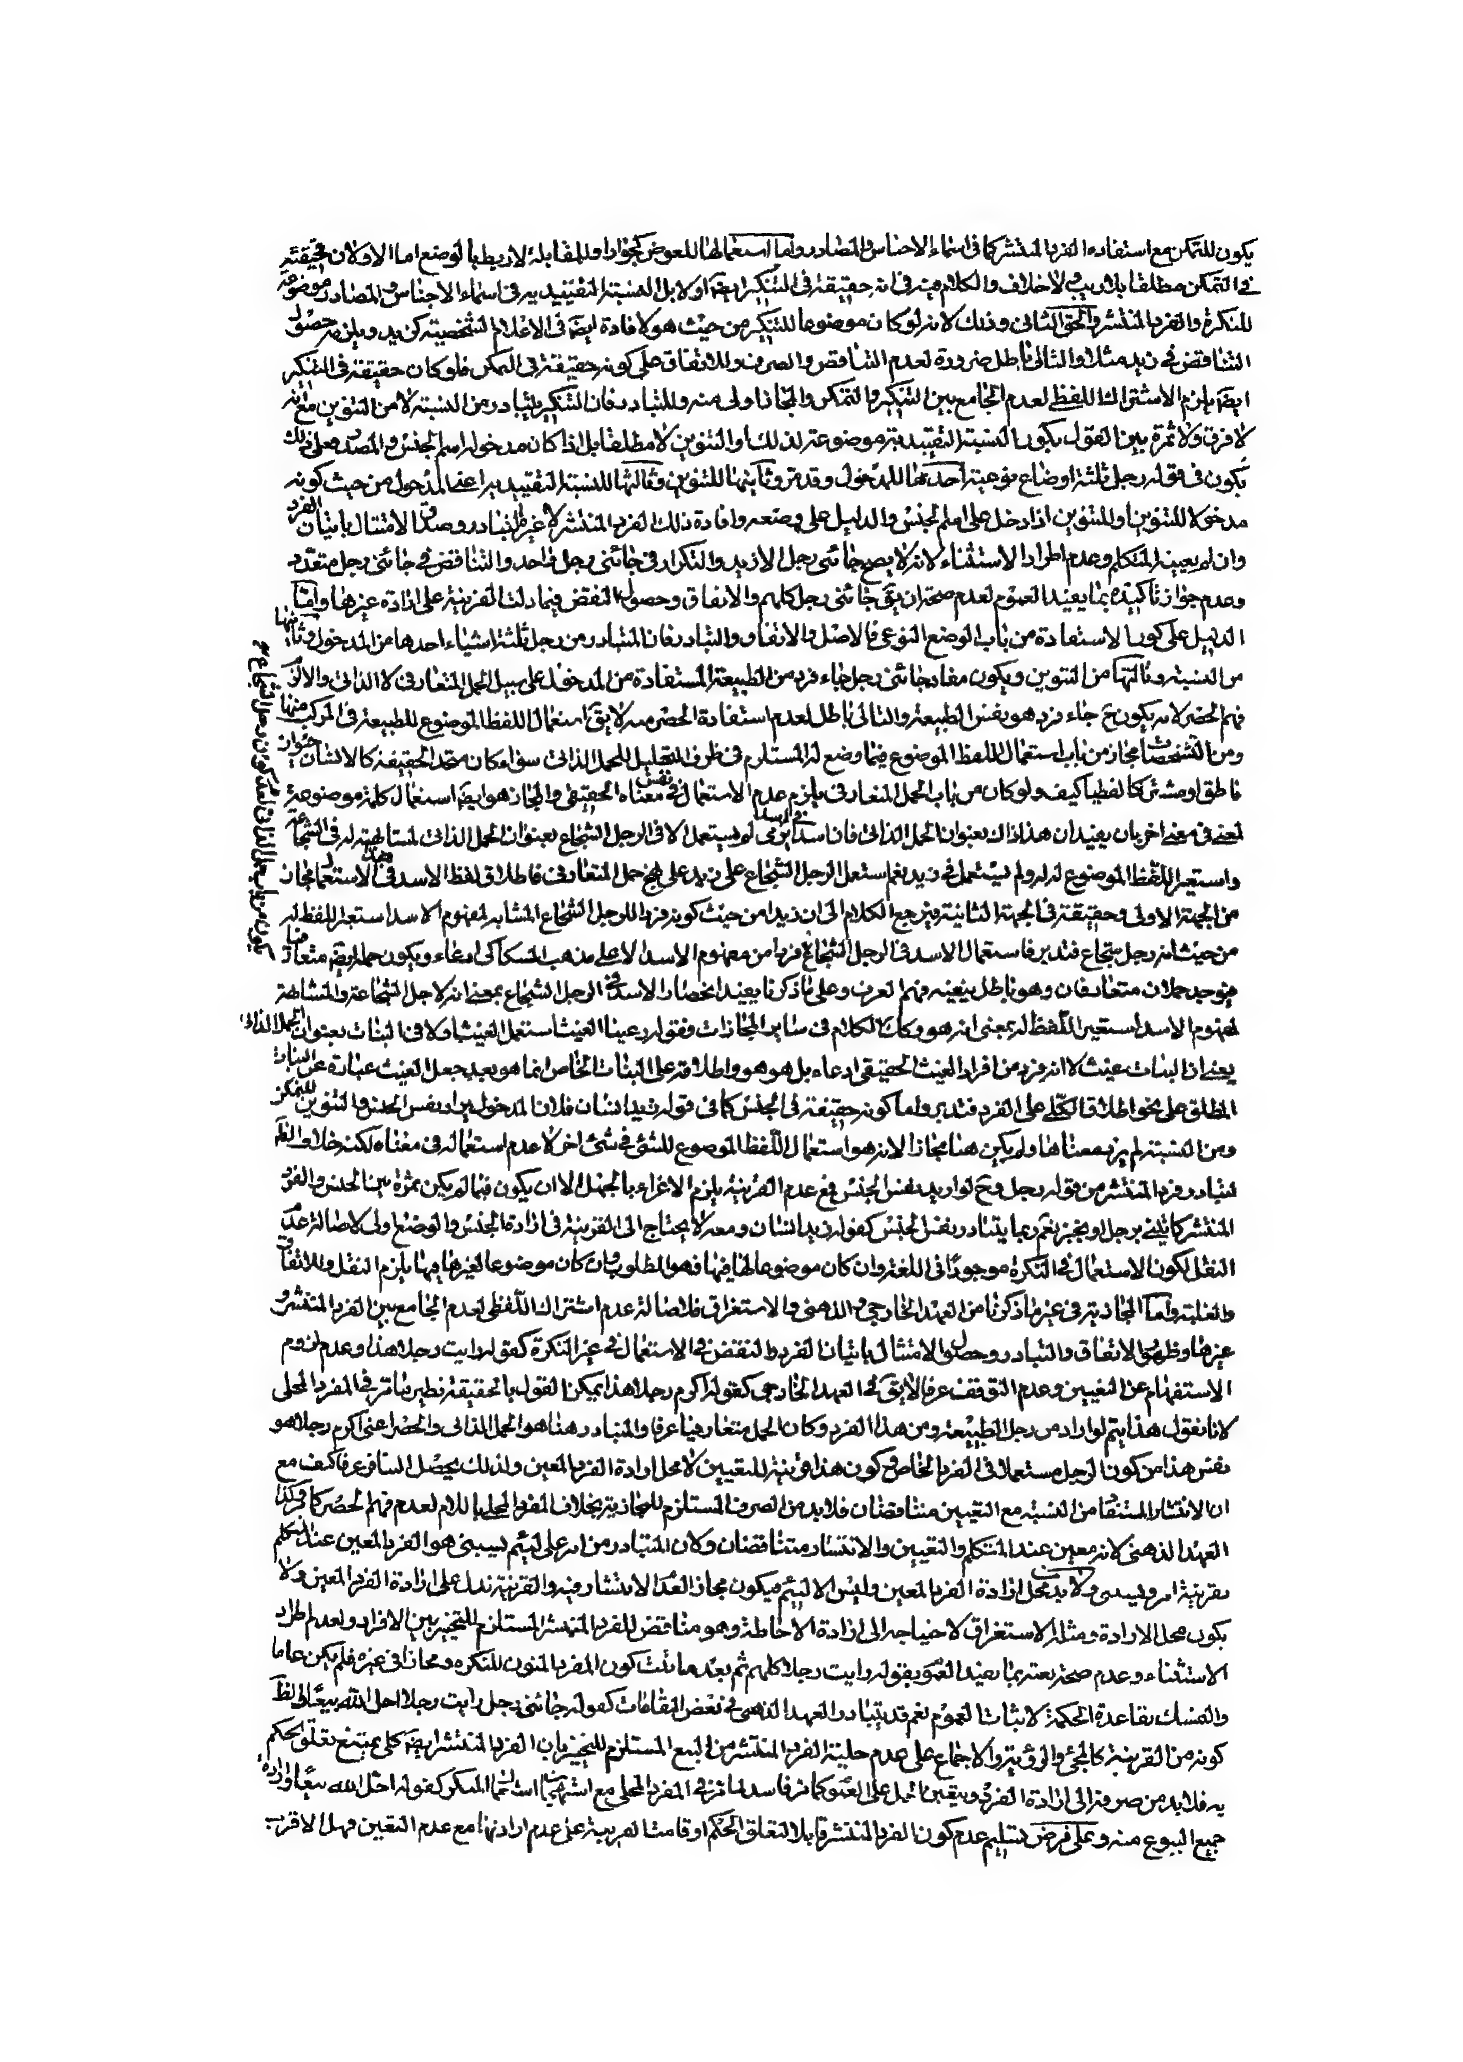 يكون للتمكن مع استفادة الفرد المنتشر كما فى اسماء الاجناس والمصادر واما استعمالها للعوض كجوار او للمقابلة لا ربط بالوضع اما الاولان فحقيقة
فى التمكن مطلقا بلا ريب ولا خلاف والكلام فيه فى انه حقيقة فى التنكير ايضا اولا بل النسبة التقييدية فى اسماء الاجناس والمصادر موضوعة
للنكرة والفرد المنتشر والحق الثانى وذلك لانه لو كان موضوعا للتنكير من حيث هو لافادة ايضا فى الاعلام الشخصية كزيد ويلزم حصول
التناقض فى زيد مثلا والتالى باطل ضرورة لعدم التناقض والصرف وللاتفاق على كونه حقيقة فى التمكن فلو كان حقيقة فى التنكير
ايضا يلزم الاشتراك اللفظى لعدم الجامع بين التنكير والتمكن والمجاز اولى منه وللتبادر فان التنكير يتبادر من النسبة لا من التنوين مع انه
لا فرق ولا ثمرة بين القول بكون النسبة التقييدية موضوعة لذلك او التنوين لا مطلقا بل اذا كان مدخوله اسم الجنس والمصدر فعلى ذلك
يكون فى قوله رجل ثلثة اوضاع نوعية احدها للمدخول وقد مر وثانيها للتنوين وثالثها للنسبة التقييدية اعنى المدخول من حيث كونه
مدخولا للتنوين او للتنوين اذا دخل على اسم الجنس والدليل على وضعه وافادة ذلك الفرد المنتشر لا غير التبادر وصدق الامتثال باتيان الفرد
وان لم يعينه المتكلم وعدم اطراد الاستثناء لانه لا يصح جائنى رجل الا زيد والتكرار فى جائنى رجل واحد والتناقض فى جائنى رجل متعدد
وعدم جواز تاكيده بما يفيد العموم لعدم صحة ان يق جائنى رجل كلهم والاتفاق وحصول النقض فيما دلت القرينة على ارادة غيرها واما
الدليل على كون الاستفادة من باب الوضع النوعى فالاصل والاتفاق والتبادر فان المتبادر من رجل ثلثة اشياء احدها من المدخول وثانيها
من النسبة وثالثها من التنوين ويكون مفاد جائنى رجل جاء فرد من الطبيعة المستفادة من المدخول على سبيل الحمل المتعارفى لا الذاتى والا لزم
فهم الحصر لانه يكون ح جاء فرد هو نفس الطبيعة والتالى باطل لعدم استفادة الحصر منه لا يق استعمال اللفظ الموضوع للطبيعة فى المركب منها
ومن التشخصات مجاز من باب استعمال اللفظ الموضوع فيما وضع له المستلزم فى ظرف التحليل للحمل الذاتى سواء كان متحد الحقيقة كالانسان حيوان
ناطق او مشتركا لفظيا كيف ولو كان من باب الحمل المتعارفى يلزم عدم الاستعمال فى نفس معناه الحقيقى والمجاز هو ايضا استعمال كلمة موضوعة
لمعنى فى معنى اخر بان يفيد ان هذا ذاك بعنوان الحمل الذاتى فان اسدا يرمى لم يستعمل الا فى الرجل الشجاع بعنوان الحمل الذاتى لمشابهته له فى الشجاعة
واستعير اللفظ الموضوع له له ولم يستعمل فى زيد نعم استعمل الرجل الشجاع على زيد على نهج حمل المتعارفى فاطلاق لفظ الاسد فى هذا الاستعمال مجاز
من الجهة الاولى وحقيقة فى الجهة الثانية فيرجع الكلام الى ان زيدا من حيث كونه فردا للرجل الشجاع المشابه لمفهوم الاسد استعير اللفظ له
من حيث انه رجل شجاع فتدبر فاستعمال الاسد فى الرجل الشجاع فردا من مفهوم الاسد لا على مذهب السكاكى ادعاء ويكون حمله ايضا متعارفا
فيوجد حملان متعارفان وهو باطل بنفيه فهم العرف وعلى ما ذكرنا يفيد انحصار الاسد فى الرجل الشجاع بمعنى انه لاجل الشجاعة والمشابهة
لمفهوم الاسد استعير اللفظ له بمعنى انه هو وكك الكلام فى ساير المجازات وقوله رعينا الغيث استعمل الغيث اولا فى النبات بعنوان الحمل الذاتى
يعنى ان النبات غيث لا انه فرد من افراد الغيث الحقيقى ادعاء بل هو هو واطلاقه على النبات الخاص انما هو بعد جعل الغيث عبارة عن النبات
المطلق على نحو اطلاق الكلى على الفرد فتدبر واما كونه حقيقة فى الجنس كما فى قوله زيد انسان فلان المدخول يراد نفس الجنس والتنوين للتمكن
ومن النسبة لم يرد معناها ولم يكن هنا مجازا لانه هو استعمال اللفظ الموضوع للشئ فى شئ اخر لا عدم استعماله فى معناه لكنه خلاف الظاهر
لتبادر فرد المنتشر من قوله رجل وح لو اريد نفس الجنس فمع عدم القرينة يلزم الاغراء بالجهل الا ان يكون فيما لم يكن ثمرة بين الجنس والفرد
المنتشر كائتنى برجل او بخبز نعم ربما يتبادر نفس الجنس كقوله زيد انسان ومعه لا يحتاج الى القرينة فى ارادة الجنس والوضع اولى لاصالة عدم
النقل لكون الاستعمال فى النكرة موجودا فى اللغة وان كان موضوعا لها فيها فهو المطلوب وان كان موضوعا لغيرها فيها يلزم النقل وللاتفاق
والغلبة واما المجازية فى غير ما ذكرنا من العهد الخارجى والذهنى والاستغراق فلاصالة عدم اشتراك اللفظى لعدم الجامع بين الفرد المنتشر و
غيرها وظهور الاتفاق والتبادر وحصول الامتثال باتيان الفرد والنقض فى الاستعمال فى غير النكرة كقوله رايت رجلا هذا وعدم لزوم
الاستفهام عن التعيين وعدم التوقف عرفا لا يق فى العهد الخارجى كقوله اكرم رجلا هذا يمكن القول بالحقيقة نظير ما مر فى المفرد المحلى
لانا نقول هذا يتم لو اراد من رجل الطبيعة ومن هذا الفرد وكان الحمل متعارفيا عرفا والمتبادر هنا هو الحمل الذاتى والحصر اعنى اكرم رجلا هو
نفس هذا من كون الرجل مستعملا فى الفرد الخاص وكون هذا قرينة للتعيين لا محل ارادة الفرد المعين ولذلك يحصل التنافر عرفا كيف مع
ان الانتشار المستفاد من النسبة مع التعيين متناقضان فلا بد من الصرف المستلزم للمجازية بخلاف المفرد المحلى باللام لعدم فهم الحصر كما مر وكذا
العهد الذهنى لانه معين عند المتكلم والتعيين والانتشار متناقضان ولان المتبادر من امر على لئيم يسبنى هو الفرد المعين عند المتكلم
بقرينة امر ويسبنى ولا بد محل ارادة الفرد المعين وليس الا لئيم فيكون مجازا لعدم الانتشار فيه والقرينة تدل على ارادة الفرد المعين ولا
يكون محل الارادة ومثله الاستغراق لاحتياجه الى ارادة الاحاطة وهو مناقض للفرد المنتشر المستلزم للتخيير بين الافراد ولعدم اطراد
الاستثناء وعدم صحة نعته بما يفيد العموم بقوله رايت رجلا كلهم ثم بعد ما ثبت كون المفرد المنون للنكرة ومجازا فى غيره فلم يكن عاما
والتمسك بقاعدة الحكمة لاثبات العموم نعم قد يتبادر العهد الذهنى فى بعض المقامات كقوله جائنى رجل رايت رجلا احل الله بيعا والظ
كونه من القرينة كالمجئ والرؤية والاجماع على عدم حلية الفرد المنتشر من البيع المستلزم للتخيير بان الفرد المنتشر ايضا كلى يمتنع تعلق الحكم
به فلا بد من صرفه الى ارادة الفرد ويتعين الحمل على العموم كما مر فاسد لما مر فى المفرد المحلى مع اشتهار استعمال المنكر كقوله احل الله بيعا وارادة
جميع البيوع منه وعلى فرض تسليم عدم كون الفرد المنتشر قابلا لتعلق الحكم او قامت القرينة على عدم ارادتها مع عدم التعيين فهل الاقرب